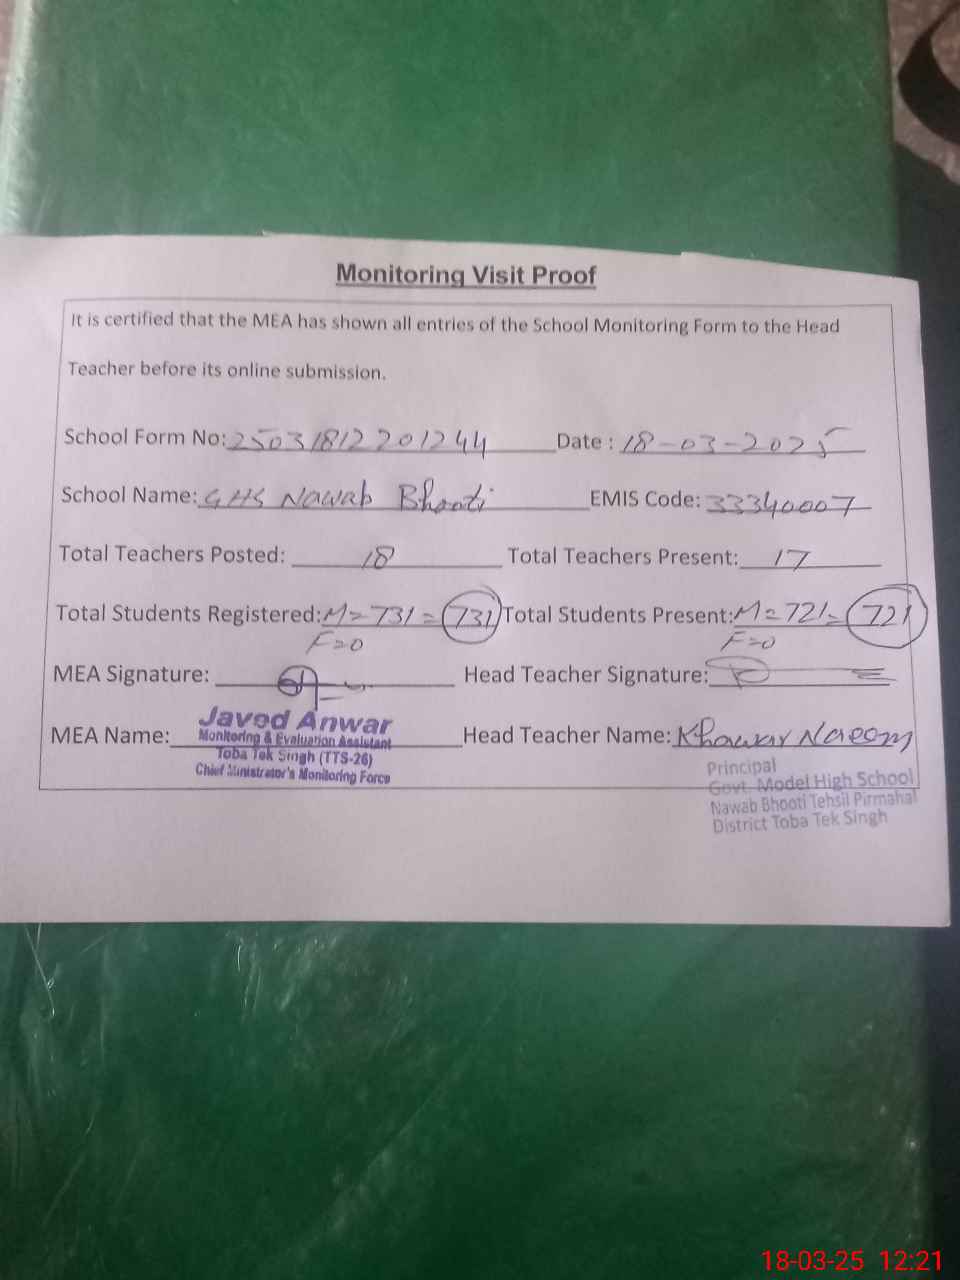 Monitoring Visit Proof
It is certified that the MEA has shown all entries of the School Monitoring Form to the Head
Teacher before its online submission.
School Form No: 25031812201244 Date : 18-03-2025
School Name: GHS Nawab Bhooti EMIS Code: 33340007
Total Teachers Posted: 18 Total Teachers Present: 17
Total Students Registered: M=731= 731 Total Students Present: M=721= 721
F=0 F=0
MEA Signature: Head Teacher Signature:
Javed Anwar
MEA Name: Monitoring & Evaluation Assistant Head Teacher Name: Khawar Naeem
Toba Tek Singh (TTS-26)
Chief Ministrator's Monitoring Force
Principal
Govt. Model High School
Nawab Bhooti Tehsil Pirmahal
District Toba Tek Singh
18-03-25 12:21